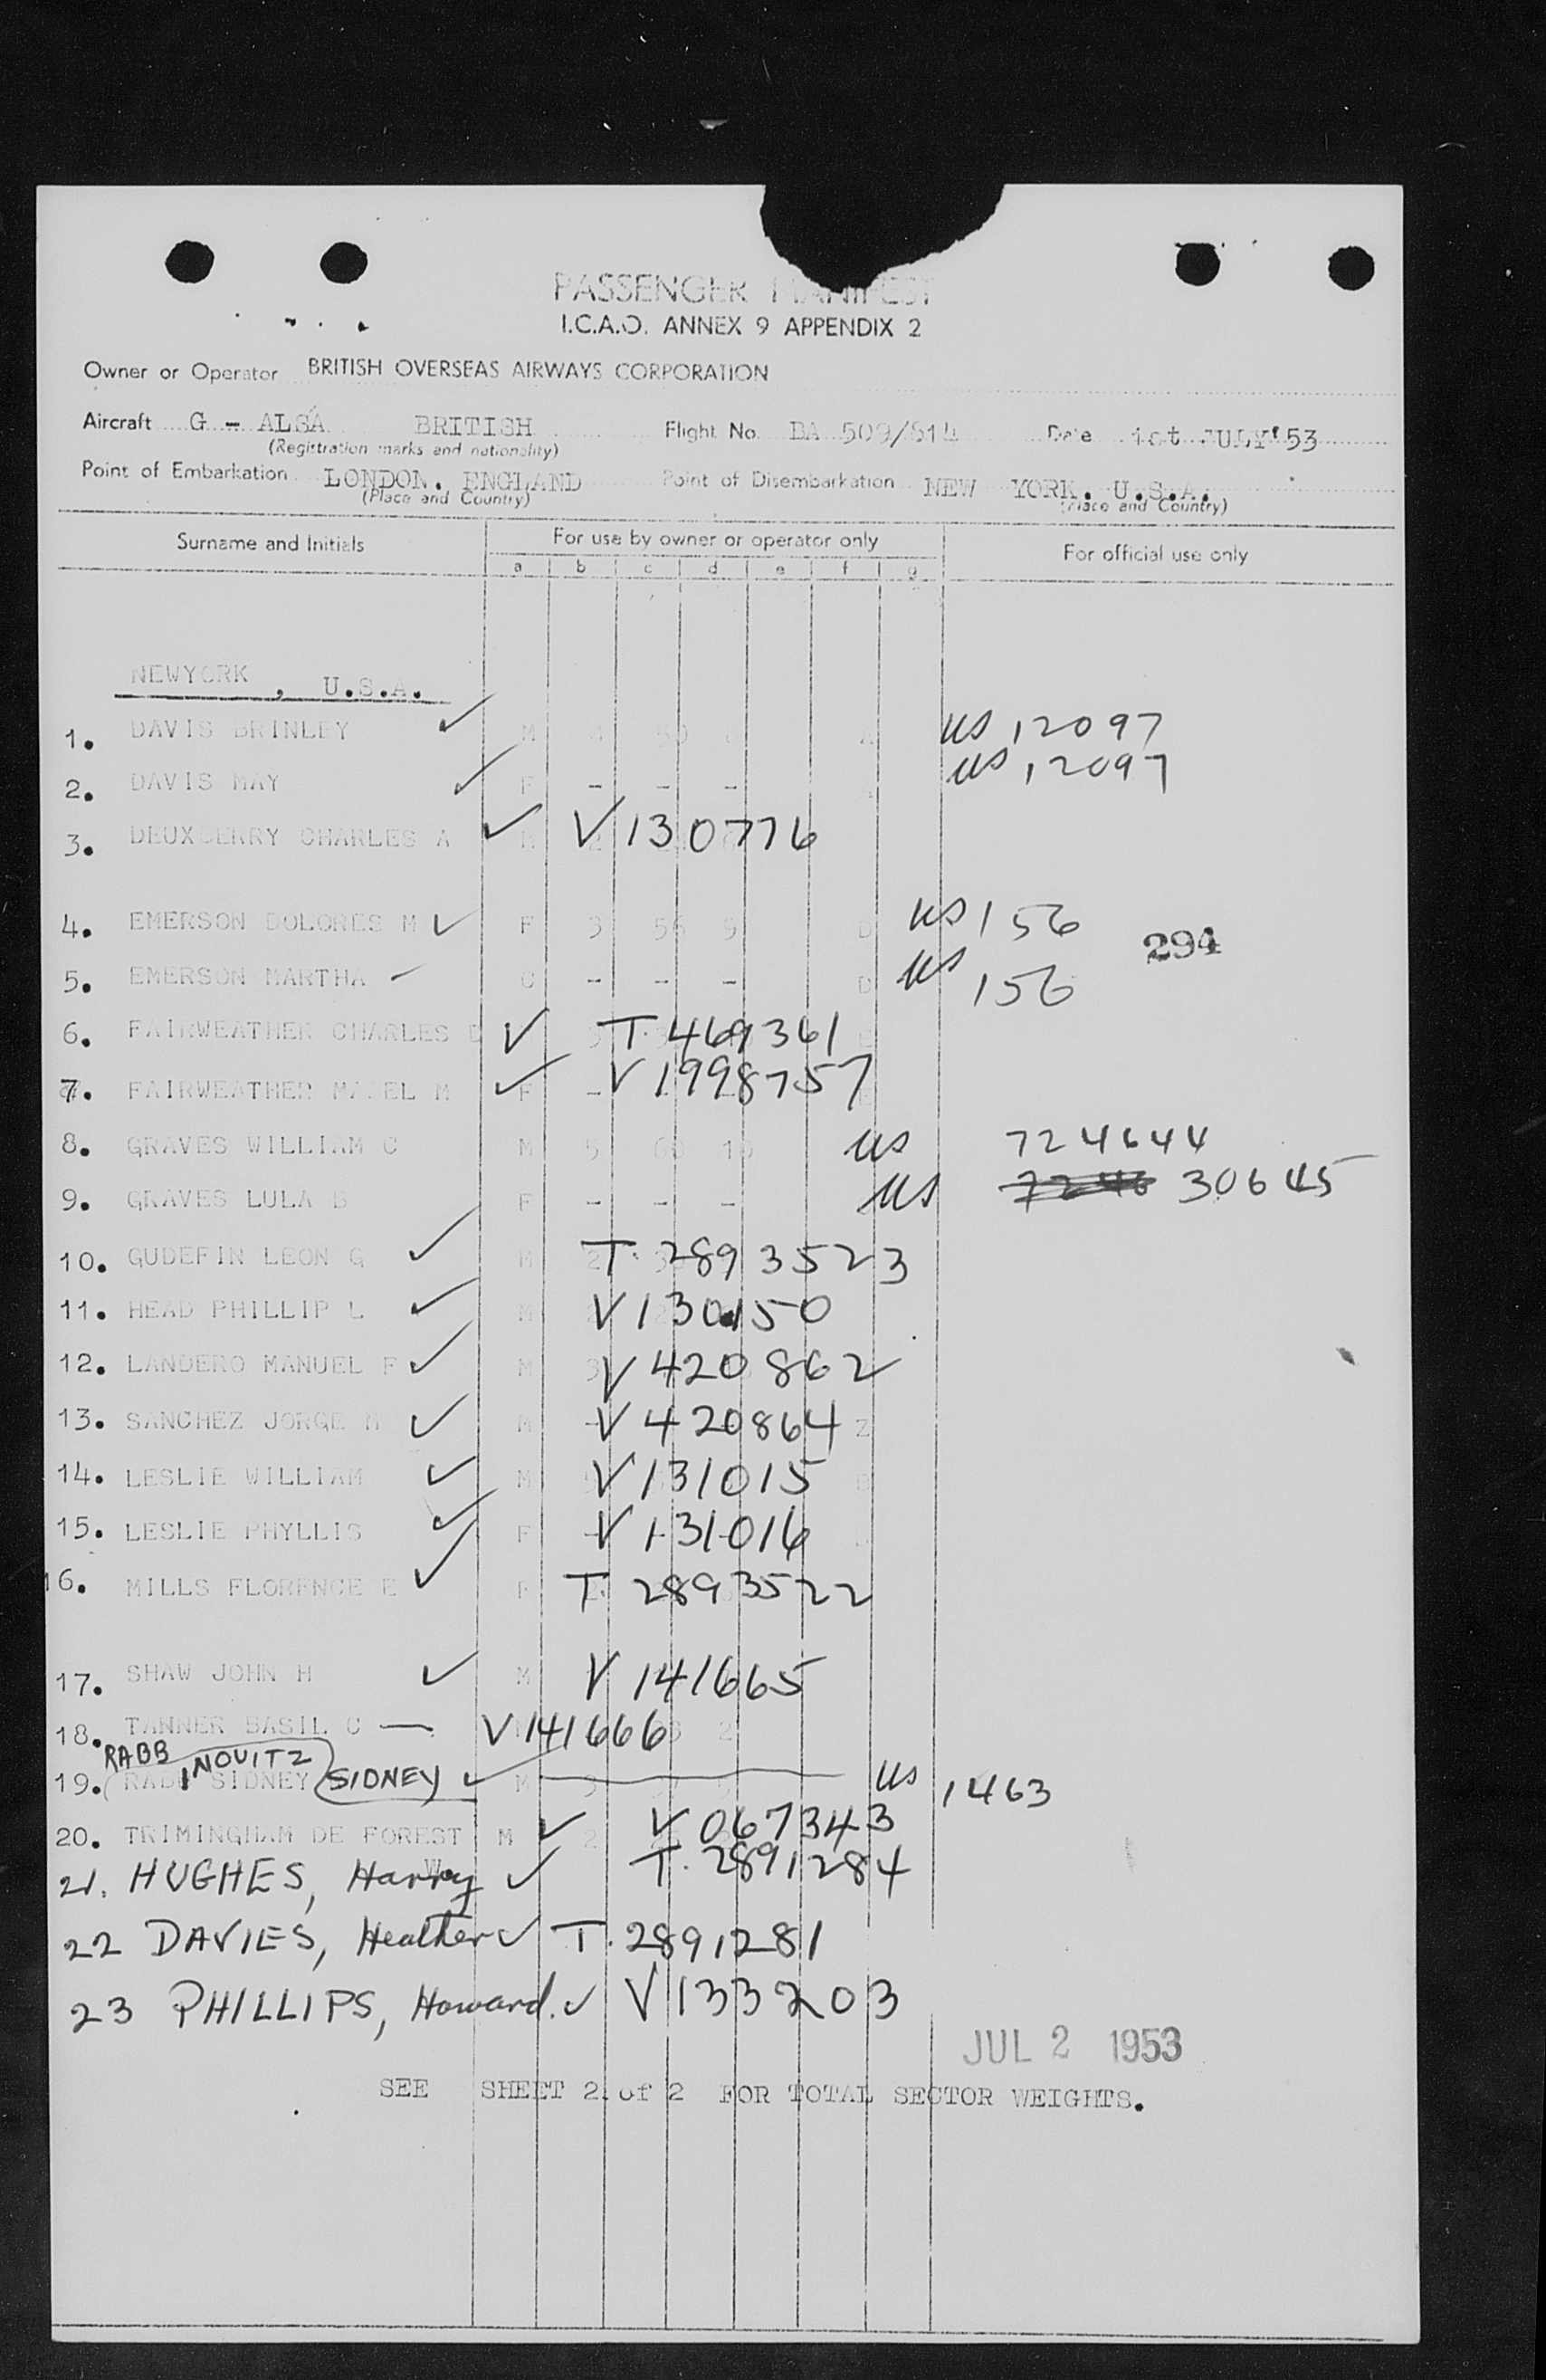 PASSENGER MANIFEST
I.C.A.O. ANNEX 9 APPENDIX 2
Owner or Operator BRITISH OVERSEAS AIRWAYS CORPORATION
Aircraft G - ALSA BRITISH Flight No. BA 509/514 Date 1st JULY'53
(Registration marks and nationality)
Point of Embarkation LONDON. ENGLAND Point of Disembarkation NEW YORK. U.S.A.
(Place and Country) (Place and Country)
Surname and Initials For use by owner or operator only For official use only
a b c d e f g
NEWYORK , U.S.A.
1. DAVIS BRINLEY ✓ M 4 US 12097
2. DAVIS MAY ✓ F - - - US 12097
3. CHARLES A ✓ M V 130776
4. EMERSON DOLORES M ✓ F 3 56 9 D US 156
294
5. EMERSON MARTHA C - - - D US 156
6. FAIRWEATHER CHARLES ✓ T. 469361
7. FAIRWEATHER MABEL M ✓ F - V 1998757
8. GRAVES WILLIAM C M 5 US 724644
9. GRAVES LULA B F - - - US 7246 30645
10. GUDEFIN LEON G ✓ M T 2893523
11. HEAD PHILLIP L ✓ M V 130150
12. LANDERO MANUEL F ✓ M V 420862
13. SANCHEZ JORGE M ✓ M V 420864 Z
14. LESLIE WILLIAM ✓ M V 131015
15. LESLIE PHYLLIS ✓ F V 131016
16. MILLS FLORENCE E ✓ F T 2893522
17. SHAW JOHN H ✓ M V 141665
18. TANNER BASIL C — V 141666
RABBINOVITZ
19. RABB SIDNEY SIDNEY ✓ M 3 US 1463
20. TRIMINGHAM DE FOREST M ✓ 2 V 067343
W.
21. HUGHES, Harry ✓ T. 2891284
22 DAVIES, Heather ✓ T. 2891281
23 PHILLIPS, Howard. ✓ V 133203
JUL 2 1953
SEE SHEET 2 of 2 FOR TOTAL SECTOR WEIGHTS.